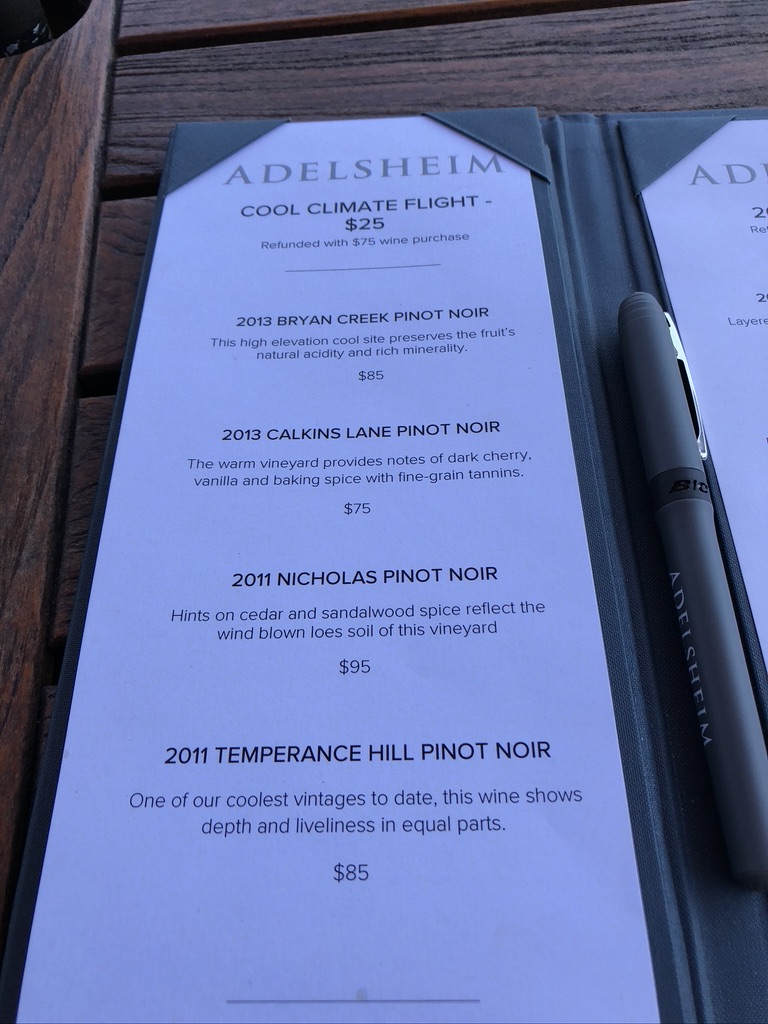 ADELSHEIM
COOL CLIMATE FLIGHT -
$25
Refunded with $75 wine purchase
2013 BRYAN CREEK PINOT NOIR
This high elevation cool site preserves the fruit's
natural acidity and rich minerality.
$85
2013 CALKINS LANE PINOT NOIR
The warm vineyard provides notes of dark cherry,
vanilla and baking spice with fine-grain tannins.
$75
2011 NICHOLAS PINOT NOIR
Hints on cedar and sandalwood spice reflect the
wind blown loes soil of this vineyard
$95
2011 TEMPERANCE HILL PINOT NOIR
One of our coolest vintages to date, this wine shows
depth and liveliness in equal parts.
$85
BIC
ADELSHEIM
Layere